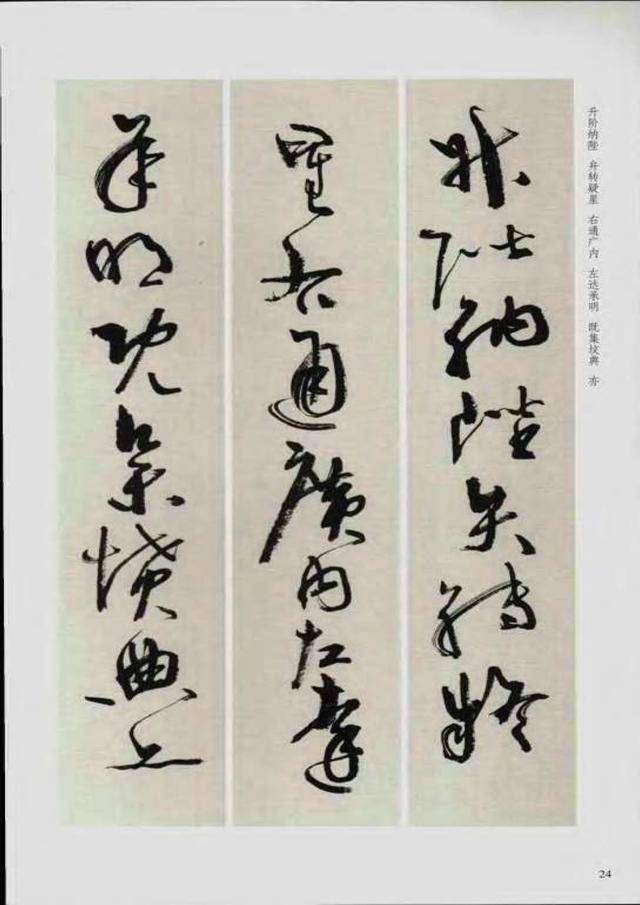 升阶纳陛 弁转疑星 右通广内 左达承明 既集坟典 亦
升階納陛弁轉疑
星右通廣內左達
承明既集墳典亦
24